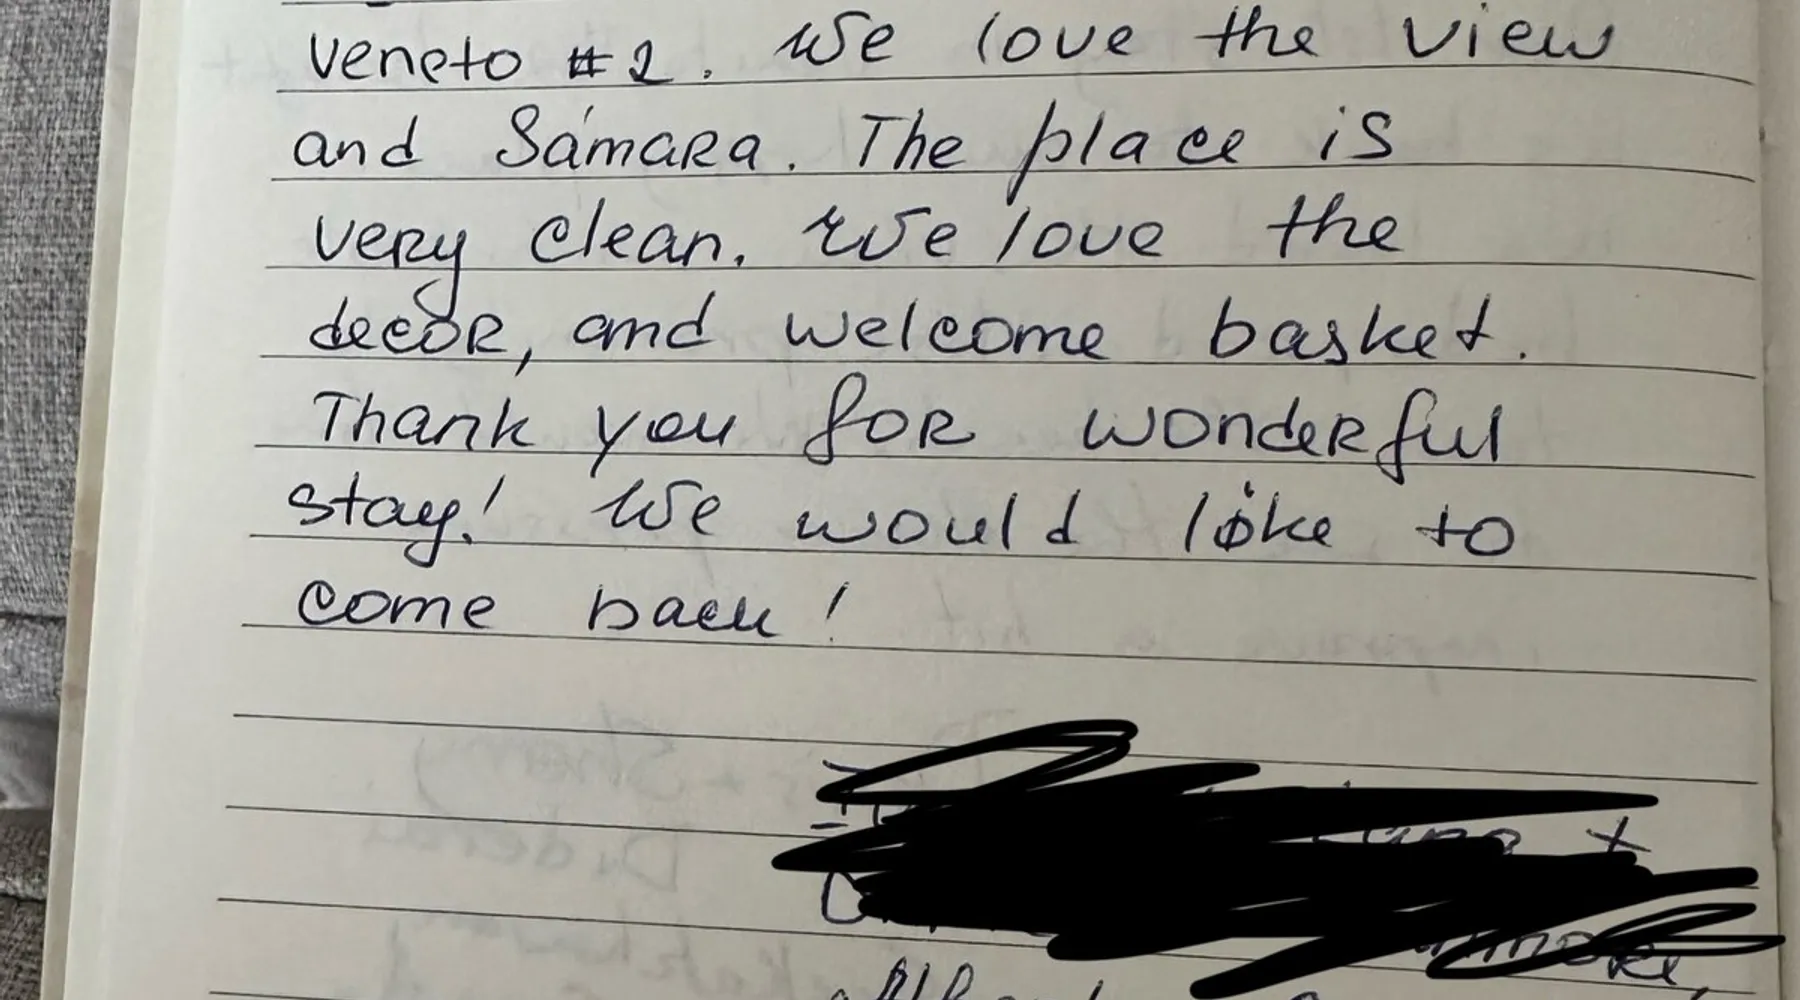 Veneto #2. We love the view
and Sámara. The place is
very clean. We love the
decor, and welcome basket.
Thank you for wonderful
stay! We would like to
come back!